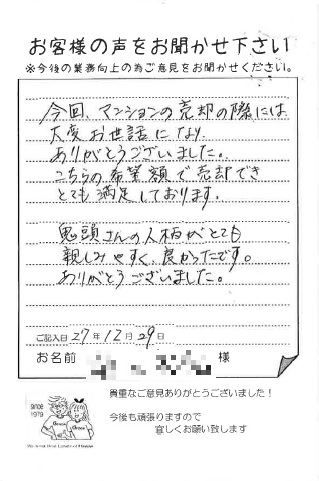 お客様の声をお聞かせ下さい
※今後の業務向上の為ご意見をお聞かせください。
今回、マンションの売却の際には
大変お世話になり
ありがとうございました。
こちらの希望額で売却でき
とても満足しております。
鬼頭さんの人柄がとても
親しみやすく、良かったです。
ありがとうございました。
ご記入日 27年 12月 29日
お名前 様
貴重なご意見ありがとうございました！
今後も頑張りますので
宜しくお願い致します
since
1979